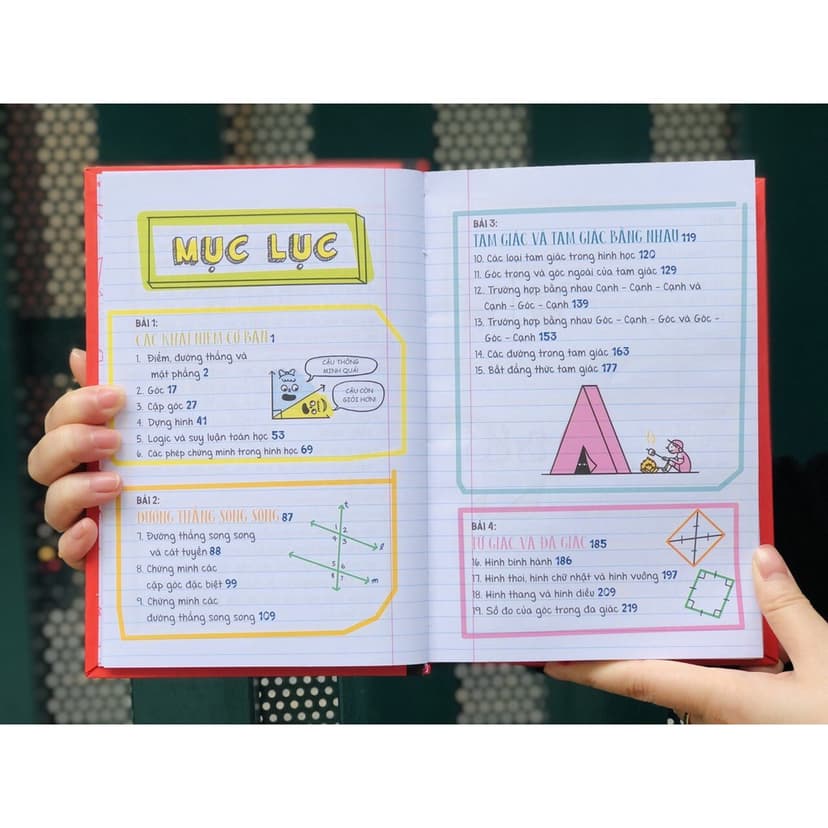 MỤC LỤC
BÀI 1:
CÁC KHÁI NIỆM CƠ BẢN 1
1. Điểm, đường thẳng và
mặt phẳng 2
2. Góc 17
3. Cặp góc 27
4. Dựng hình 41
5. Logic và suy luận toán học 53
6. Các phép chứng minh trong hình học 69
CẬU THÔNG
MINH QUÁ!
CẬU CÒN
GIỎI HƠN!
BÀI 2:
ĐƯỜNG THẲNG SONG SONG 87
7. Đường thẳng song song
và cát tuyến 88
8. Chứng minh các
cặp góc đặc biệt 99
9. Chứng minh các
đường thẳng song song 109
t
1 2
4 3
l
5 6
8 7
m
BÀI 3:
TAM GIÁC VÀ TAM GIÁC BẰNG NHAU 119
10. Các loại tam giác trong hình học 120
11. Góc trong và góc ngoài của tam giác 129
12. Trường hợp bằng nhau Cạnh - Cạnh - Cạnh và
Cạnh - Góc - Cạnh 139
13. Trường hợp bằng nhau Góc - Cạnh - Góc và Góc -
Góc - Cạnh 153
14. Các đường trong tam giác 163
15. Bất đẳng thức tam giác 177
BÀI 4:
TỨ GIÁC VÀ ĐA GIÁC 185
16. Hình bình hành 186
17. Hình thoi, hình chữ nhật và hình vuông 197
18. Hình thang và hình diều 209
19. Số đo của góc trong đa giác 219